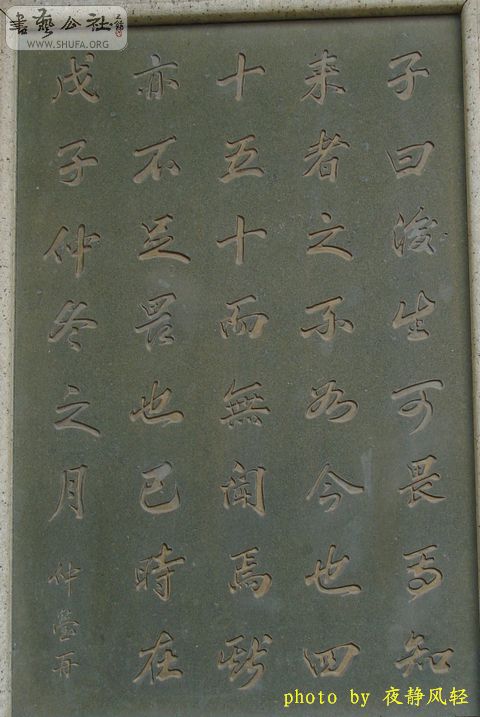 書藝公社
WWW.SHUFA.ORG
子曰後生可畏焉知
来者之不如今也四
十五十而無聞焉斯
亦不足畏也已時在
戊子仲冬之月 仲
photo by 夜静风轻